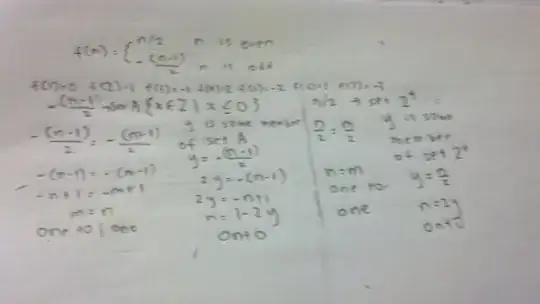 f(n) = { n/2 n is even
-(n-1)/2 n is odd
f(1)=0 f(2)=1 f(3)=-1 f(4)=2 f(5)=-2
-(n-1)/2 → set A {x ∈ Z | x ≤ 0}
-(n-1)/2 = -(m-1)/2
-(n-1) = -(m-1)
-n+1 = -m+1
m = n
one to one
y is some member
of set A
y = -(n-1)/2
2y = -(n-1)
2y = -n+1
n = 1-2y
onto
n/2 → set Z⁺
n/2 = m/2
n = m
one to
one
y is some
member
of set Z⁺
y = n/2
n = 2y
onto